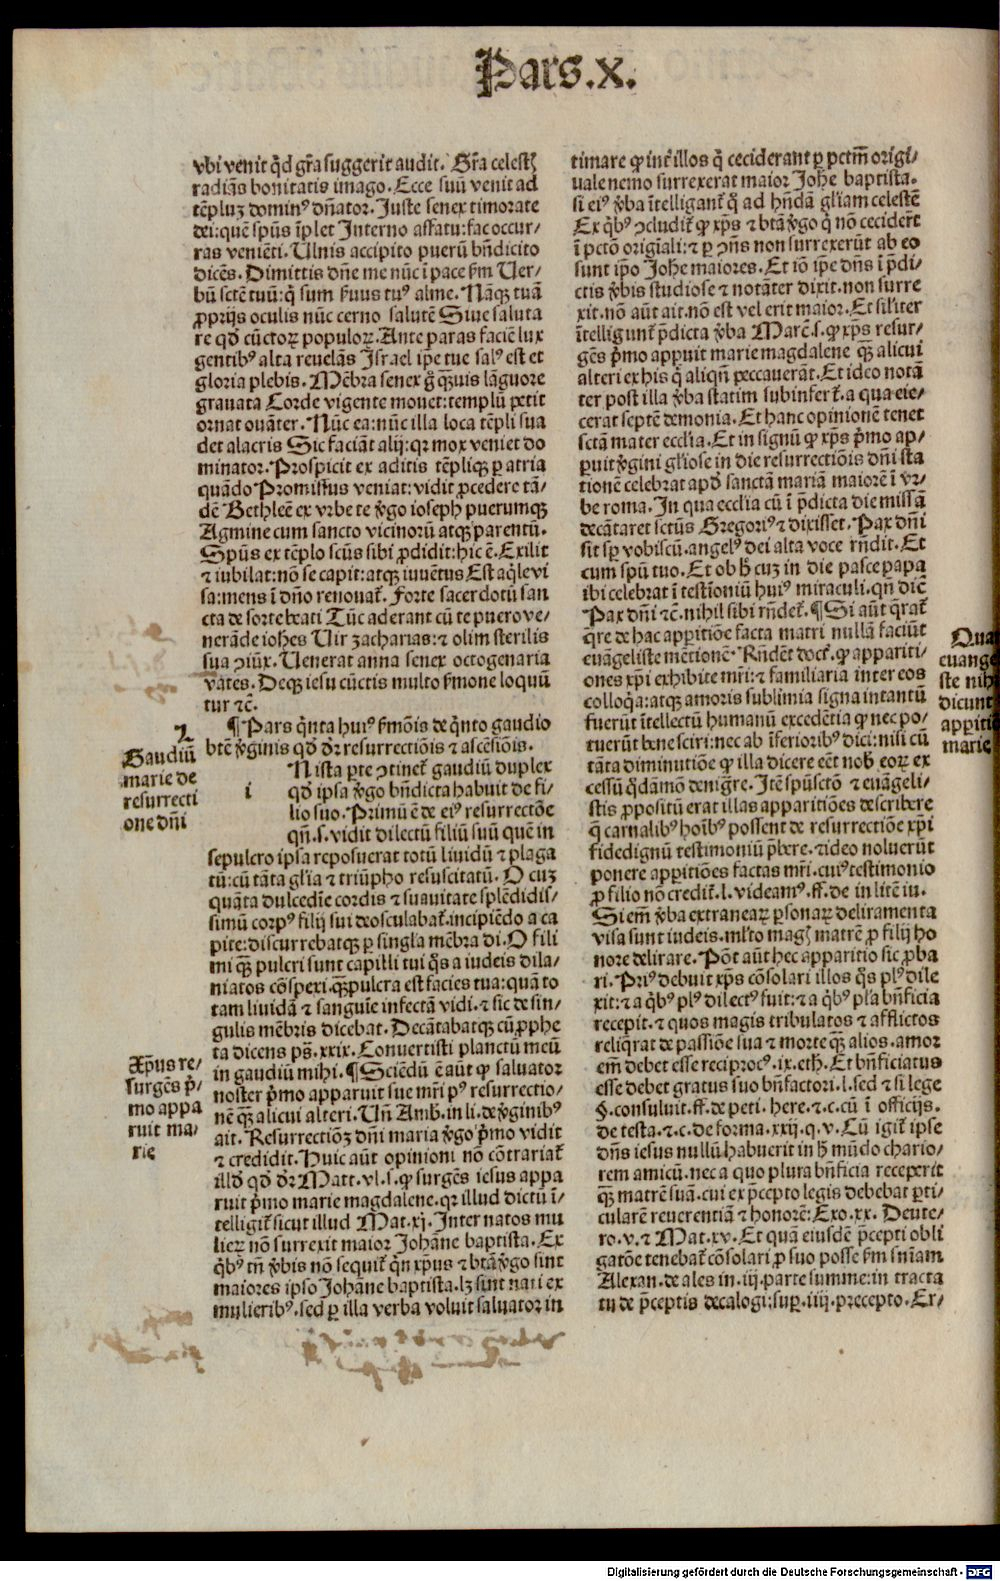 Pars.x.
vbi venit q̄d gr̄a suggerit audit. Gr̄a celestꝭ
radiāqs bonitatis imago. Ecce suū venit ad
tēpluꝫ dominꝰ dn̄ator. Juste senex timorate
dei: quē spūs īplet Interno affatu: fac occur/
ras veniēti. Ulnis accipito puerū bn̄dicito
dicēs. Dimittis dn̄e me nūc ī pace ẜm Uer/
bū sctē tuū: q̄ sum ẜuus tuꝰ alme. Nāqꝫ tuā
ꝓprijs oculis nūc cerno salutē Siue saluta
re qd̄ cūctoꝝ populoꝝ. Ante paras faciē lux
gentibꝰ alta reuelās Jsrael ip̄e tue salꝰ est et
gloria plebis. Mēbra senex g̊ qꝫuis lāguore
grauata Corde vigente mouet: templū petit
ornat ouāter. Nūc ea: nūc illa loca tēpli sua
det alacris Sic faciāt alij: qr mox veniet do
minator. Prospicit ex aditis tēpliqꝫ ꝑ atria
quādo Promissus veniat: vidit ꝓcedere tā/
dē Bethleē ex vrbe te v̊go ioseph puerumqꝫ
Agmine cum sancto vicinorū atqꝫ parentū.
Spūs ex tēplo scūs sibi ꝓdidit: hic ē. Exilit
⁊ iubilat: nō se capit: atqꝫ iuuētus Est aq̄le vi
sa: mens ī dn̄o renouat̄. Forte sacerdotū san
cta de sorte beati Tūc aderant cū te puero ve/
nerāde iohes Uir zacharias: ⁊ olim sterilis
sua ꝯiūx. Uenerat anna senex octogenaria
vates. Deqꝫ iesu cūctis multo ẜmone loquū
tur ⁊c̄.
¶ Pars q̄nta huiꝰ ẜmōis de q̄nto gaudio
btē v̊ginis qd̄ dr̄ resurrectiōis ⁊ ascēsiōis.
2
Gaudiū
marie de
resurrecti
one dn̄i
i
N ista ꝑte ꝯtinet̄ gaudiū duplex
qd̄ ipsa v̊go bn̄dicta habuit de fi/
lio suo. Primū ē de eiꝰ resurrectōe
qn̄.s. vidit dilectū filiū suū quē in
sepulcro ipsa reposuerat totū liuidū ⁊ plaga
tū: cū tāta gl̄ia ⁊ triūpho resuscitatū. O cuꝫ
quāta dulcedie cordis ⁊ suauitate splēdidis/
simū corpꝰ filij sui deosculabat̄. incipiēdo a ca
pite: discurrebatqꝫ ꝑ singl̄a mēbra di. O fili
mi qꝫ pulcri sunt capilli tui q̊s a iudeis dila/
niatos cōspexi. qꝫ pulcra est facies tua: quā to
tam liuidā ⁊ sanguīe infectā vidi. ⁊ sic de sin/
gulis mēbris dicebat. Decātabatqꝫ cū ꝓphe
ta dicens ps̄. xxix. Conuertisti planctū meū
in gaudiū mihi. ¶ Sciēdū ē aūt ꝙ saluator
noster p̊mo apparuit sue mr̄i pꝰ resurrectio/
nē qꝫ alicui alteri. Un̄ Amb. in li. de v̊ginibꝰ
ait. Resurrectiōꝫ dn̄i maria v̊go p̊mo vidit
⁊ credidit. Huic aūt opinioni nō cōtrariat̄
illd̄ qd̄ dr̄ Matt. vl.s. ꝙ surgēs iesus appa
ruit p̊mo marie magdalene. qr illud dictū ī/
telligit̄ sicut illud Mat. xj. Inter natos mu
lieꝝ nō surrexit maior Johāne baptista. Ex
q̊bꝰ tn̄ v̊bis nō sequit̄ qn̄ xp̄us ⁊ btā v̊go sint
maiores ipso Johāne baptista. lꝫ sint nati ex
mulieribꝰ. sed ꝑ illa verba voluit saluator in
Xp̄us re/
surgēs p̊/
mo appa
ruit ma/
rie
timare ꝙ int̄ illos q̄ ceciderant ꝑ pctm̄ origi/
nale nemo surrexerat maior Johe baptista.
si eiꝰ v̊ba ītelligant̄ q̊ ad hn̄dā gl̄iam celestē
Ex q̊bꝰ ꝯcludit̄ ꝙ xp̄s ⁊ btā v̊go q̄ nō cecider̄t
ī pctō origiali: ⁊ ꝑ ꝯn̄s non surrexerūt ab eo
sunt ip̄o Johe maiores. Et iō ip̄e dn̄s ī p̄di/
ctis v̊bis studiose ⁊ notāter dixit. non surre
xit. nō aūt ait. nō est vel erit maior. Et sil̄iter
ītelligunt̄ p̄dicta v̊ba Marc̄.s. ꝙ xp̄s resur/
gēs p̊mo appuit marie magdalene qꝫ alicui
alteri ex his q̄ aliqn̄ peccauerāt. Et ideo notā
ter post illa v̊ba statim subinfert̄. a qua eie/
cerat septē demonia. Et hanc opinionē tenet
sctā mater ecclia. Et in signū ꝙ xp̄s p̊mo ap/
paruit v̊gini gl̄iose in die resurrectiōis dn̄i sta
tionē celebrat apd̄ sanctā mariā maiorē ī vr/
be roma. In qua ecclia cū ī p̄dicta die missā
decātaret sctūs Gregoriꝰ ⁊ dixisset. Pax dn̄i
sit sp̄ vobiscū. angelꝰ dei alta voce rn̄dit. Et
cum spū tuo. Et ob h̄ cuꝫ in die pasce papa
ibi celebrat ī testīoniū huiꝰ miraculi. qn̄ dic̄
Pax dn̄i ⁊c̄. nihil sibi rn̄det̄. ¶ Si aūt q̄rat̄
q̄re de hac apparitiōe facta matri nullā faciūt
euāgeliste mētionē. Rn̄dēt doct̄. ꝙ appariti/
ones xp̄i exhibite mr̄i: ⁊ familiaria inter eos
colloq̄a: atqꝫ amoris sublimia signa intantū
fuerūt ītellectū humanū excedētia ꝙ nec po/
tuerūt bene sciri: nec ab īferioribꝰ dici: nisi cū
tāta diminutiōe ꝙ illa dicere eēt nob̄ eoꝝ ex
cessū q̊dāmō denigr̄e. Itē spūsctō ⁊ euāgeli/
stis ꝓpositū erat illas apparitiōes describere
q̄ carnalibꝰ hoībꝰ possent de resurrectiōe xp̄i
fidedignū testimoniū p̄bere. ⁊ ideo noluerūt
ponere apparitiōes factas mr̄i. cuiꝰ testimonio
ꝓ filio nō credit̄. l. videamꝰ. ff. de in litē iu.
Si em̄ v̊ba extraneaꝝ ꝑsonaꝝ deliramenta
visa sunt iudeis. ml̄to magꝭ matrē ꝓ filij ho
nore delirare. Pōt aūt hec apparitio sic ꝓba
ri. Priꝰ debuit xp̄s cōsolari illos q̊s plꝰ dile
xit: ⁊ a q̊bꝰ plꝰ dilectꝰ fuit: ⁊ a q̊bꝰ pl̄a bn̄ficia
recepit. ⁊ quos magis tribulatos ⁊ afflictos
reliq̄rat de passiōe sua ⁊ morte qꝫ alios. amor
em̄ debet esse reciprocꝰ. ix. eth. Et bn̄ficiatus
esse debet gratus suo bn̄factori. l. sed ⁊ si lege
§. consuluit. ff. de peti. here. ⁊ c. cū ī officijs.
de testa. ⁊ c. de forma. xxij. q. v. Cū igit̄ ipse
dn̄s iesus nullū habuerit in h̄ mūdo chario/
rem amicū. nec a quo plura bn̄ficia receperit
qꝫ matrē suā. cui ex p̄cepto legis debebat ꝑti/
cularē reuerentiā ⁊ honorē: Exo. xx. Deute/
ro. v. ⁊ Mat. xv. Et quā eiusdē p̄cepti obli
gatōe tenebat̄ cōsolari ꝓ suo posse ẜm sn̄iam
Alexan. de ales in. iij. parte summe: in tracta
tu de p̄ceptis decalogi: suꝑ. iiij. precepto. Er/
euang
ste nih
dicunt
apparitiō
marie
Digitalisierung gefördert durch die Deutsche Forschungsgemeinschaft - DFG